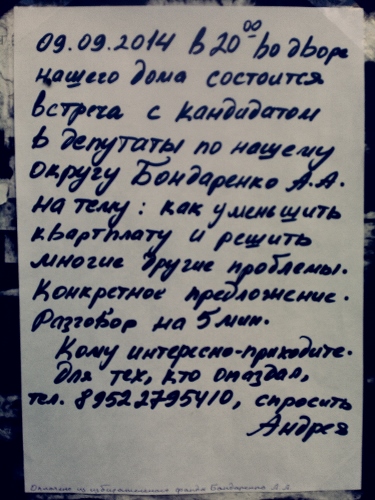 09.09.2014 в 20⁰⁰ во дворе
нашего дома состоится
встреча с кандидатом
в депутаты по нашему
округу Бондаренко А.А.
на тему: как уменьшить
квартплату и решить
многие другие проблемы.
Конкретное предложение.
Разговор на 5 мин.
Кому интересно-приходите.
Для тех, кто опоздал,
тел. 89522795410, спросить
Андрея
Оплачено из избирательного фонда Бондаренко А.А.